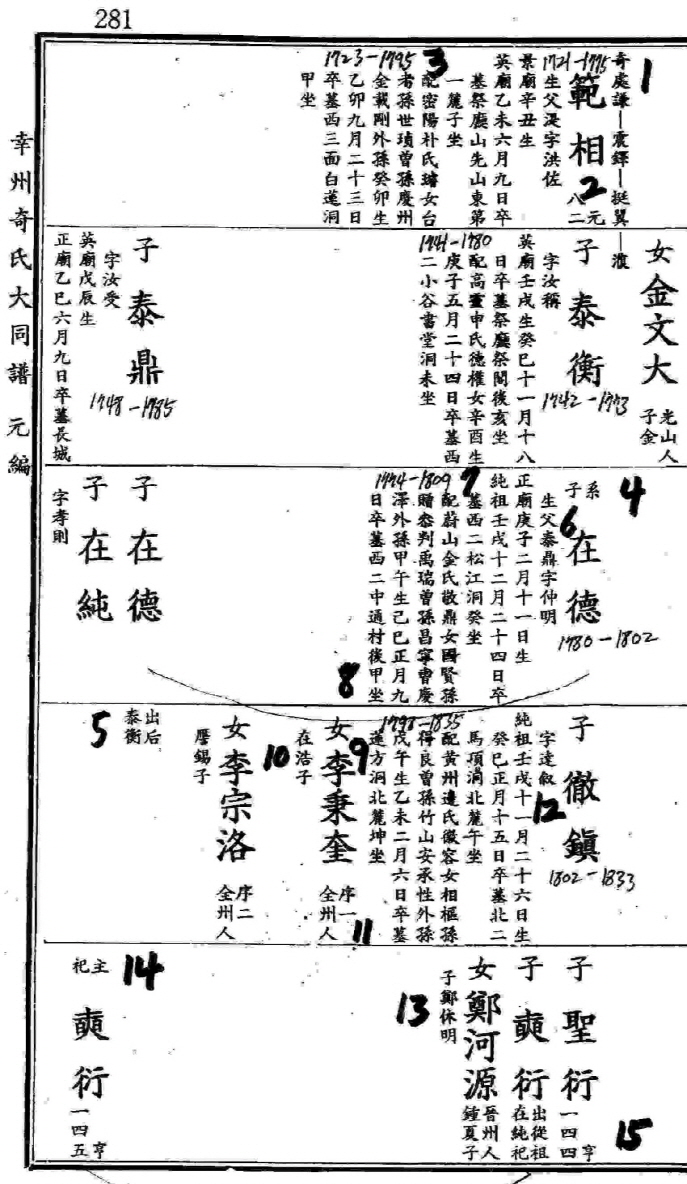 281
幸州奇氏大同譜 元編
1
奇處謙─震鐸─挺翼─濮
1721-1775
範相
2
元
八二
生父湜字洪佐
景廟辛丑生
英廟乙未六月九日卒
墓祭廳山先山東第
一麓子坐
3
配密陽朴氏璿女台
1723-1795
者孫世瓆曾孫慶州
金載剛外孫癸卯生
乙卯九月二十三日
卒墓西三面白蓮洞
甲坐
女金文大
光山人
子金
子泰衡
1742-1773
字汝稱
英廟壬戌生癸巳十一月十八
日卒墓祭廳祭閣後亥坐
配高靈申氏德權女辛酉生
1741-1780
庚子五月二十四日卒墓西
二小谷書堂洞未坐
子泰鼎
1748-1785
字汝受
英廟戊辰生
正廟乙巳六月九日卒墓長城
4
系子
6
在德
1780-1802
生父泰鼎字仲明
正廟庚子二月十一日生
純祖壬戌十二月二十四日卒
墓西二松江洞癸坐
7
配蔚山金氏敬鼎女國賢孫
1774-1809
贈參判禹瑞曾孫昌寧曺慶
澤外孫甲午生己巳正月九
日卒墓西二中通村後甲坐
8
子在德
子在純
字孝則
子徹鎭
1802-1833
字達叙
12
純祖壬戌十一月二十六日生
癸巳正月十五日卒墓北二
馬項洞北麓午坐
配黃州邊氏徽容女相樞孫
1798-1835
得良曾孫竹山安承性外孫
戊午生乙未二月六日卒墓
蓮方洞北麓坤坐
9
女李秉奎
序一
全州人
11
在浩子
10
女李宗洛
序二
全州人
曆錫子
出后
泰衡
5
子聖衍
亨
一四四
15
子奭衍
出從祖
在純祀
女鄭河源
晉州人
鍾夏子
子鄭休明
13
14
主祀
奭衍
亨
一四五